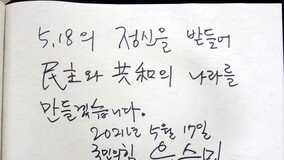 5.18의 정신을 받들어
民主와 共和의 나라를
만들겠습니다.
2021년 5월 17일
국민의힘